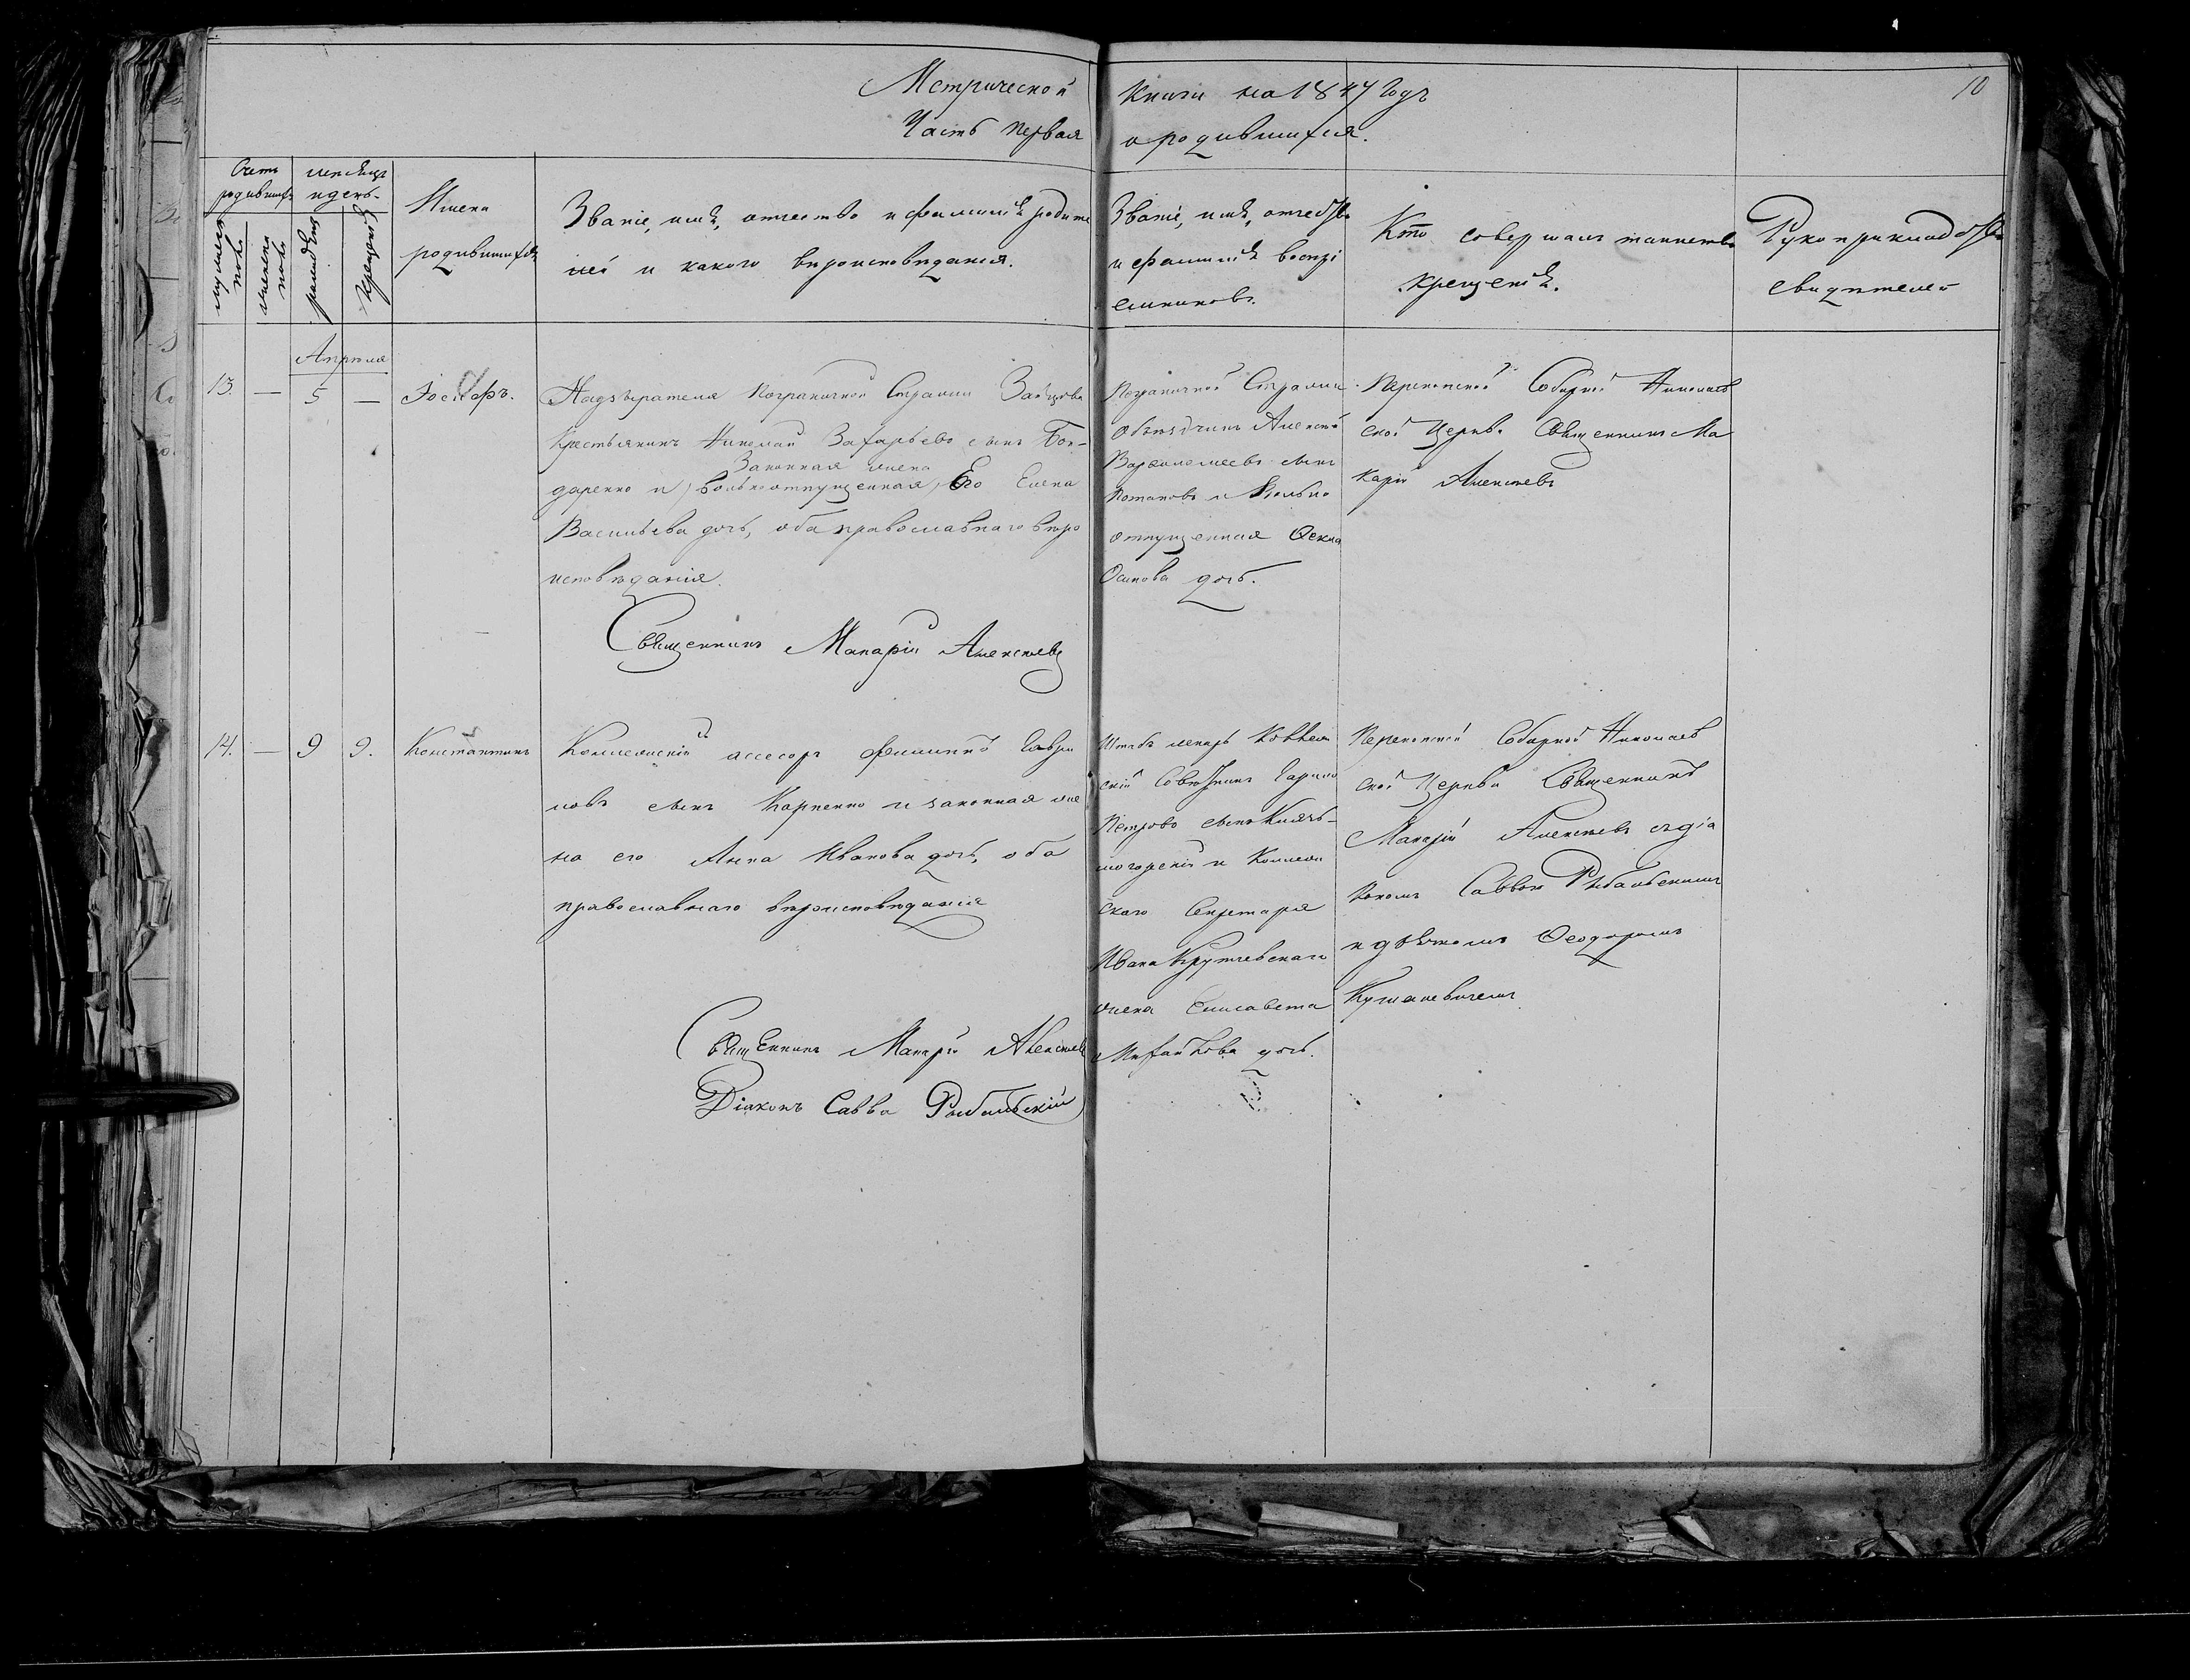 Метрической книги на 1847 годъ
10
Часть первая о родившихся.
Счетъ родившихся
мужеска пола
женска пола
месяцъ и день
рожденія
крещенія
Имена
родившихся
Званіе, имя, отчество и фамилія родите
лей и какого вѣроисповѣданія.
Званіе, имя, отчество
и фамилія воспрі
емниковъ.
Кто совершалъ таинство
крещенія.
Рукоприкладство
свидѣтелей
Апрѣля
13. — 5 —
Іосифъ.
Надзирателя Пограничной Стражи Зайцова
Крестьянинъ Николай Захарьевъ сынъ Бон-
Законная жена
даренко и вольноотпущенная, Его Елена
Васильева дочь, оба православнаго вѣро
исповѣданія.
Священникъ Макарій Алексѣевъ
Пограничной Стражи
объѣздчикъ Алексѣй
Варфоломеевъ сынъ
Потаповъ и Вольно
отпущенная
Осипова дочь.
Перекопской Соборной Николаев
ской Церкви Священникъ Ма
карій Алексѣевъ
14. — 9 9.
Константинъ
Коллежскій ассесоръ Филиппъ Гаври
ловъ сынъ Карпенко и законная же
на его Анна Иванова дочь, оба
православнаго вѣроисповѣданія
Священникъ Макарій Алексѣевъ
Діаконъ Савва Рыбальскій
Штабъ лекарь Коллеж
скій Совѣтникъ
Петровъ сынъ
и Коллеж
скаго Секретаря
Ивана Крутчевскаго
жена Елисавета
Михайлова дочь.
Перекопской Соборной Николаев
ской Церкви Священникъ
Макарій Алексѣевъ съ діа
кономъ Саввою Рыбальскимъ
и дьячкомъ Ѳеодоромъ